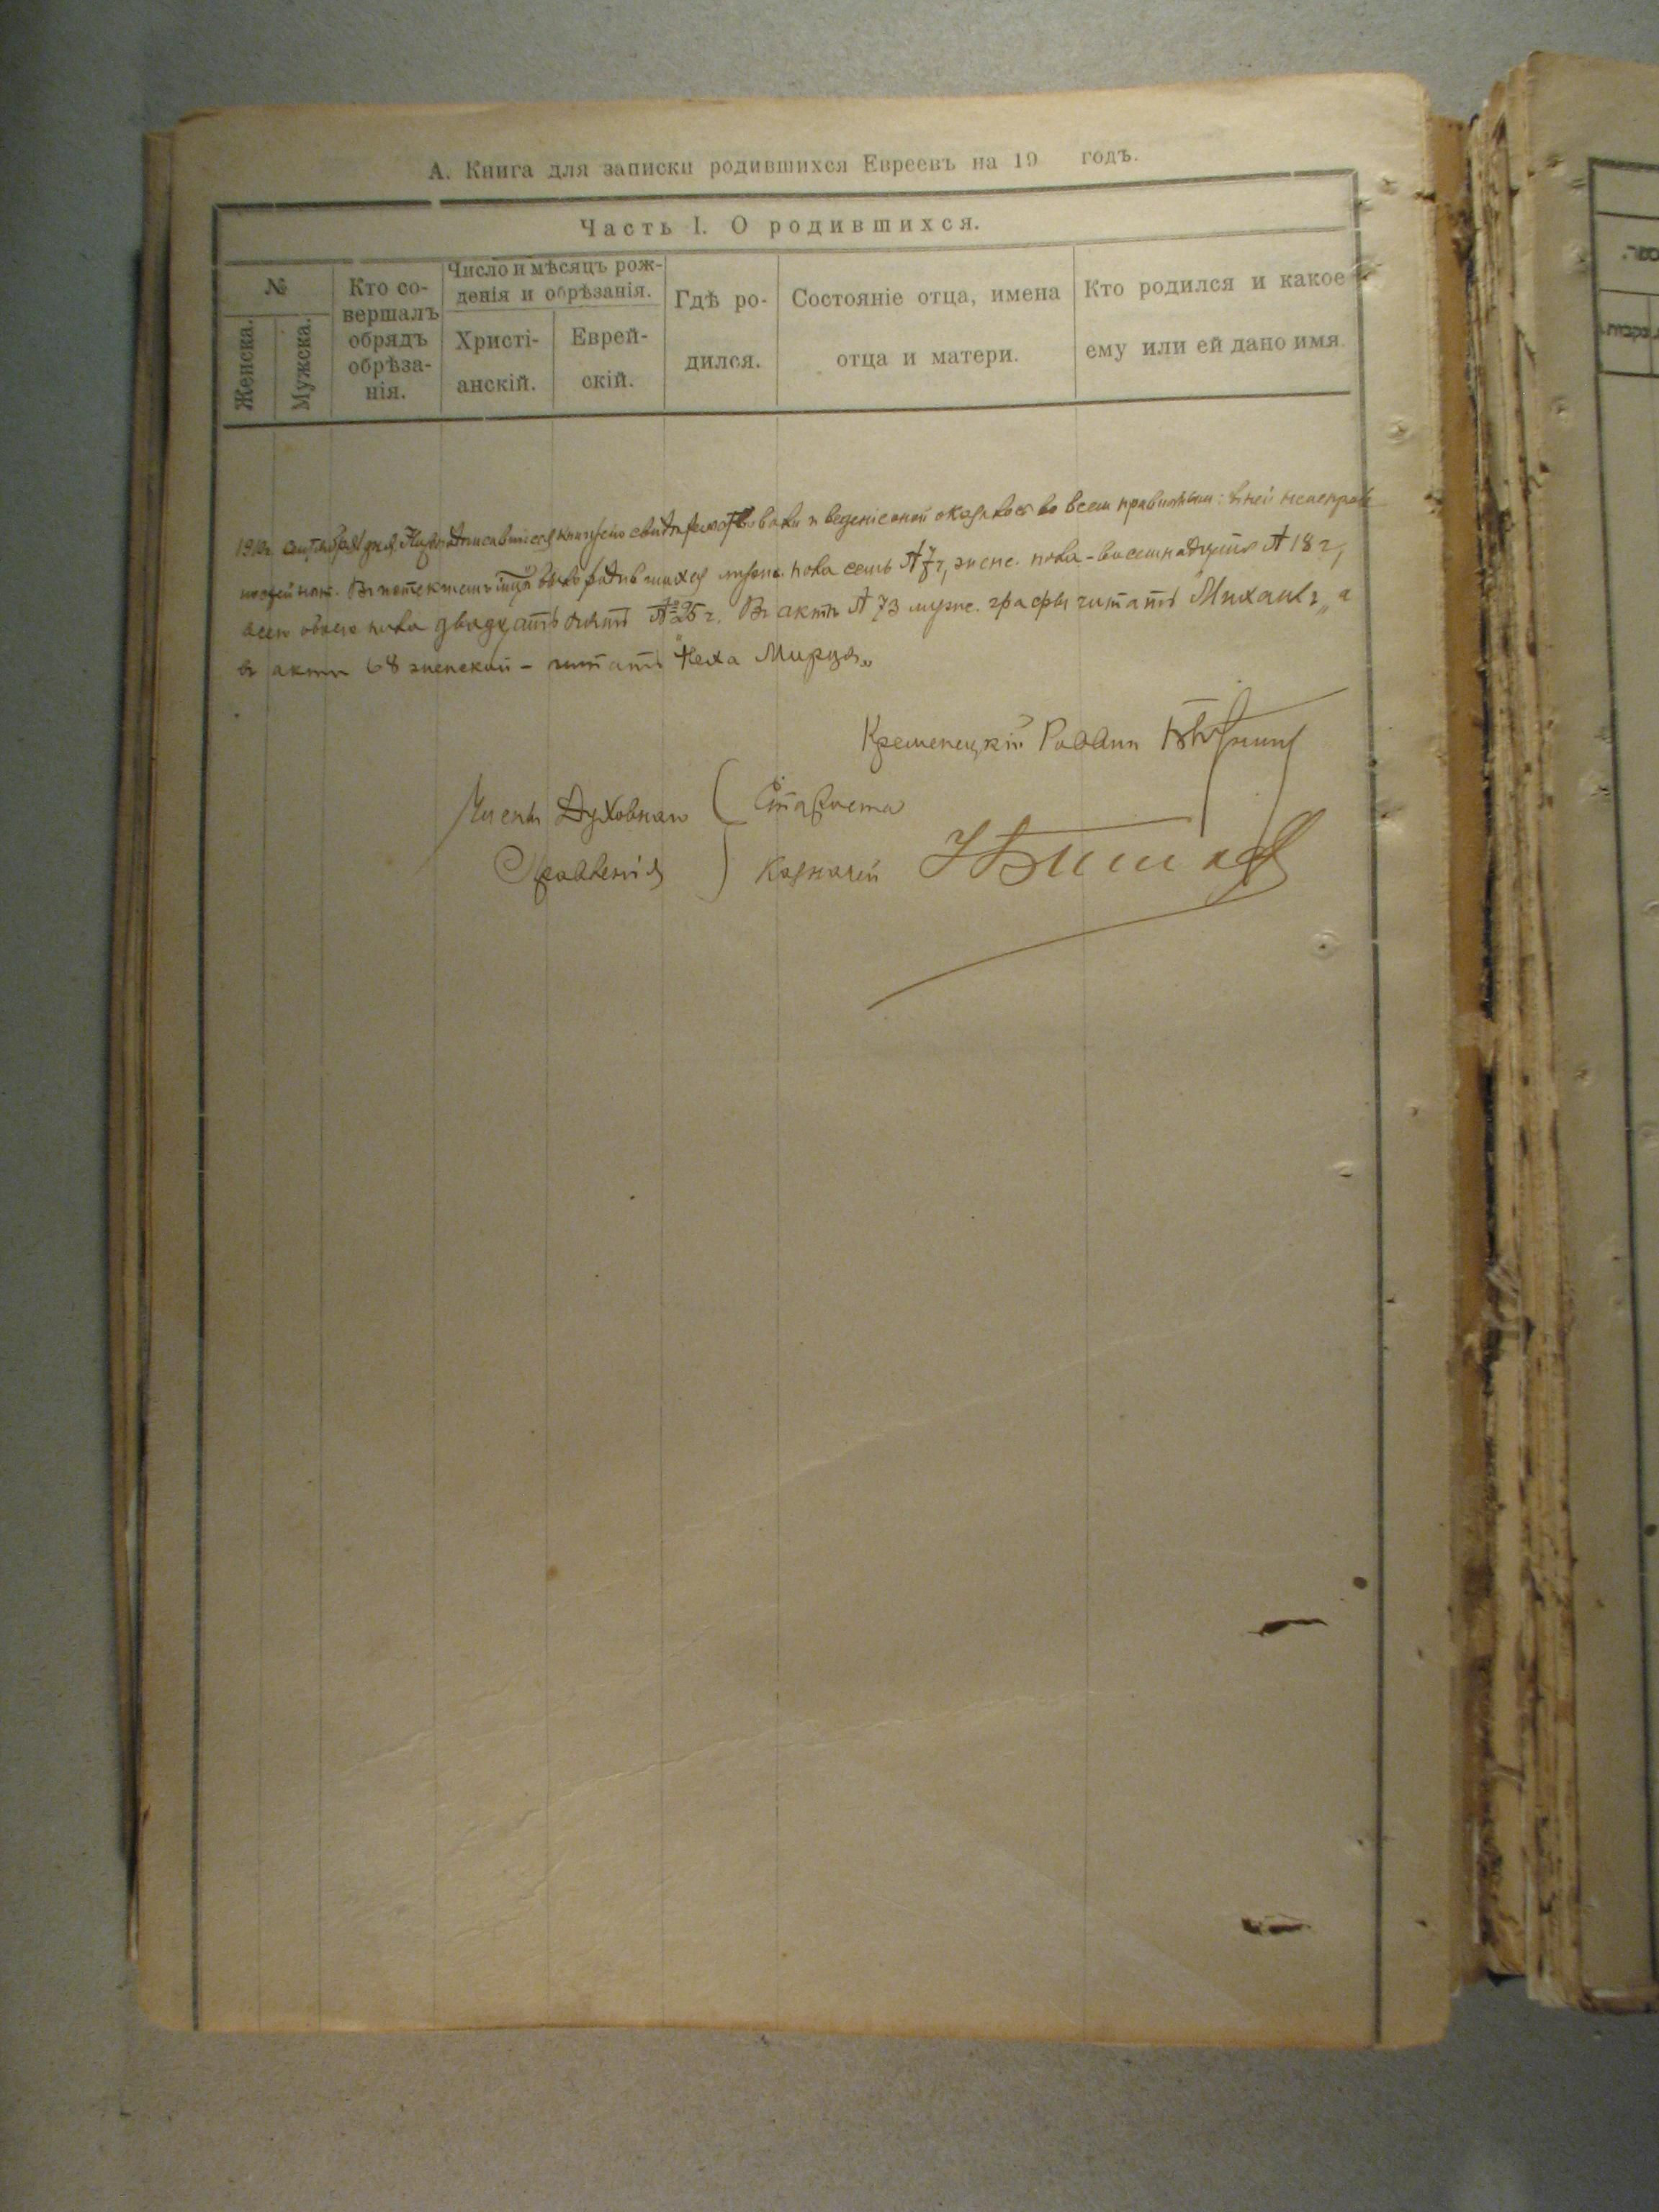 А. Книга для записки родившихся Евреевъ на 19 годъ.
Часть I. О родившихся.
№
Женска.
Мужска.
Кто со-
вершалъ
обрядъ
обрѣза-
нія.
Число и мѣсяцъ рож-
денія и обрѣзанія.
Христі-
анскій.
Еврей-
скій.
Гдѣ ро-
дился.
Состояніе отца, имена
отца и матери.
Кто родился и какое
ему или ей дано имя.
сентября дня книгу сію свидѣтельствовали и веденіе оной оказалось во всем правильным: в ней неисправ
ностей нѣт. Въ истекшемъ мцѣ было родившихся мужск. пола семь № 7, женс. пола - восемнадцать № 18,
всего обоего пола двадцать пять № 25. Въ актѣ № 73 мужс. графы читать "Михаилъ" а
въ актѣ 68 женской - читать "Неха Мирця"
Кременецкій Раввин
Члены Духовнаго
Правленія
Староста
Казначей